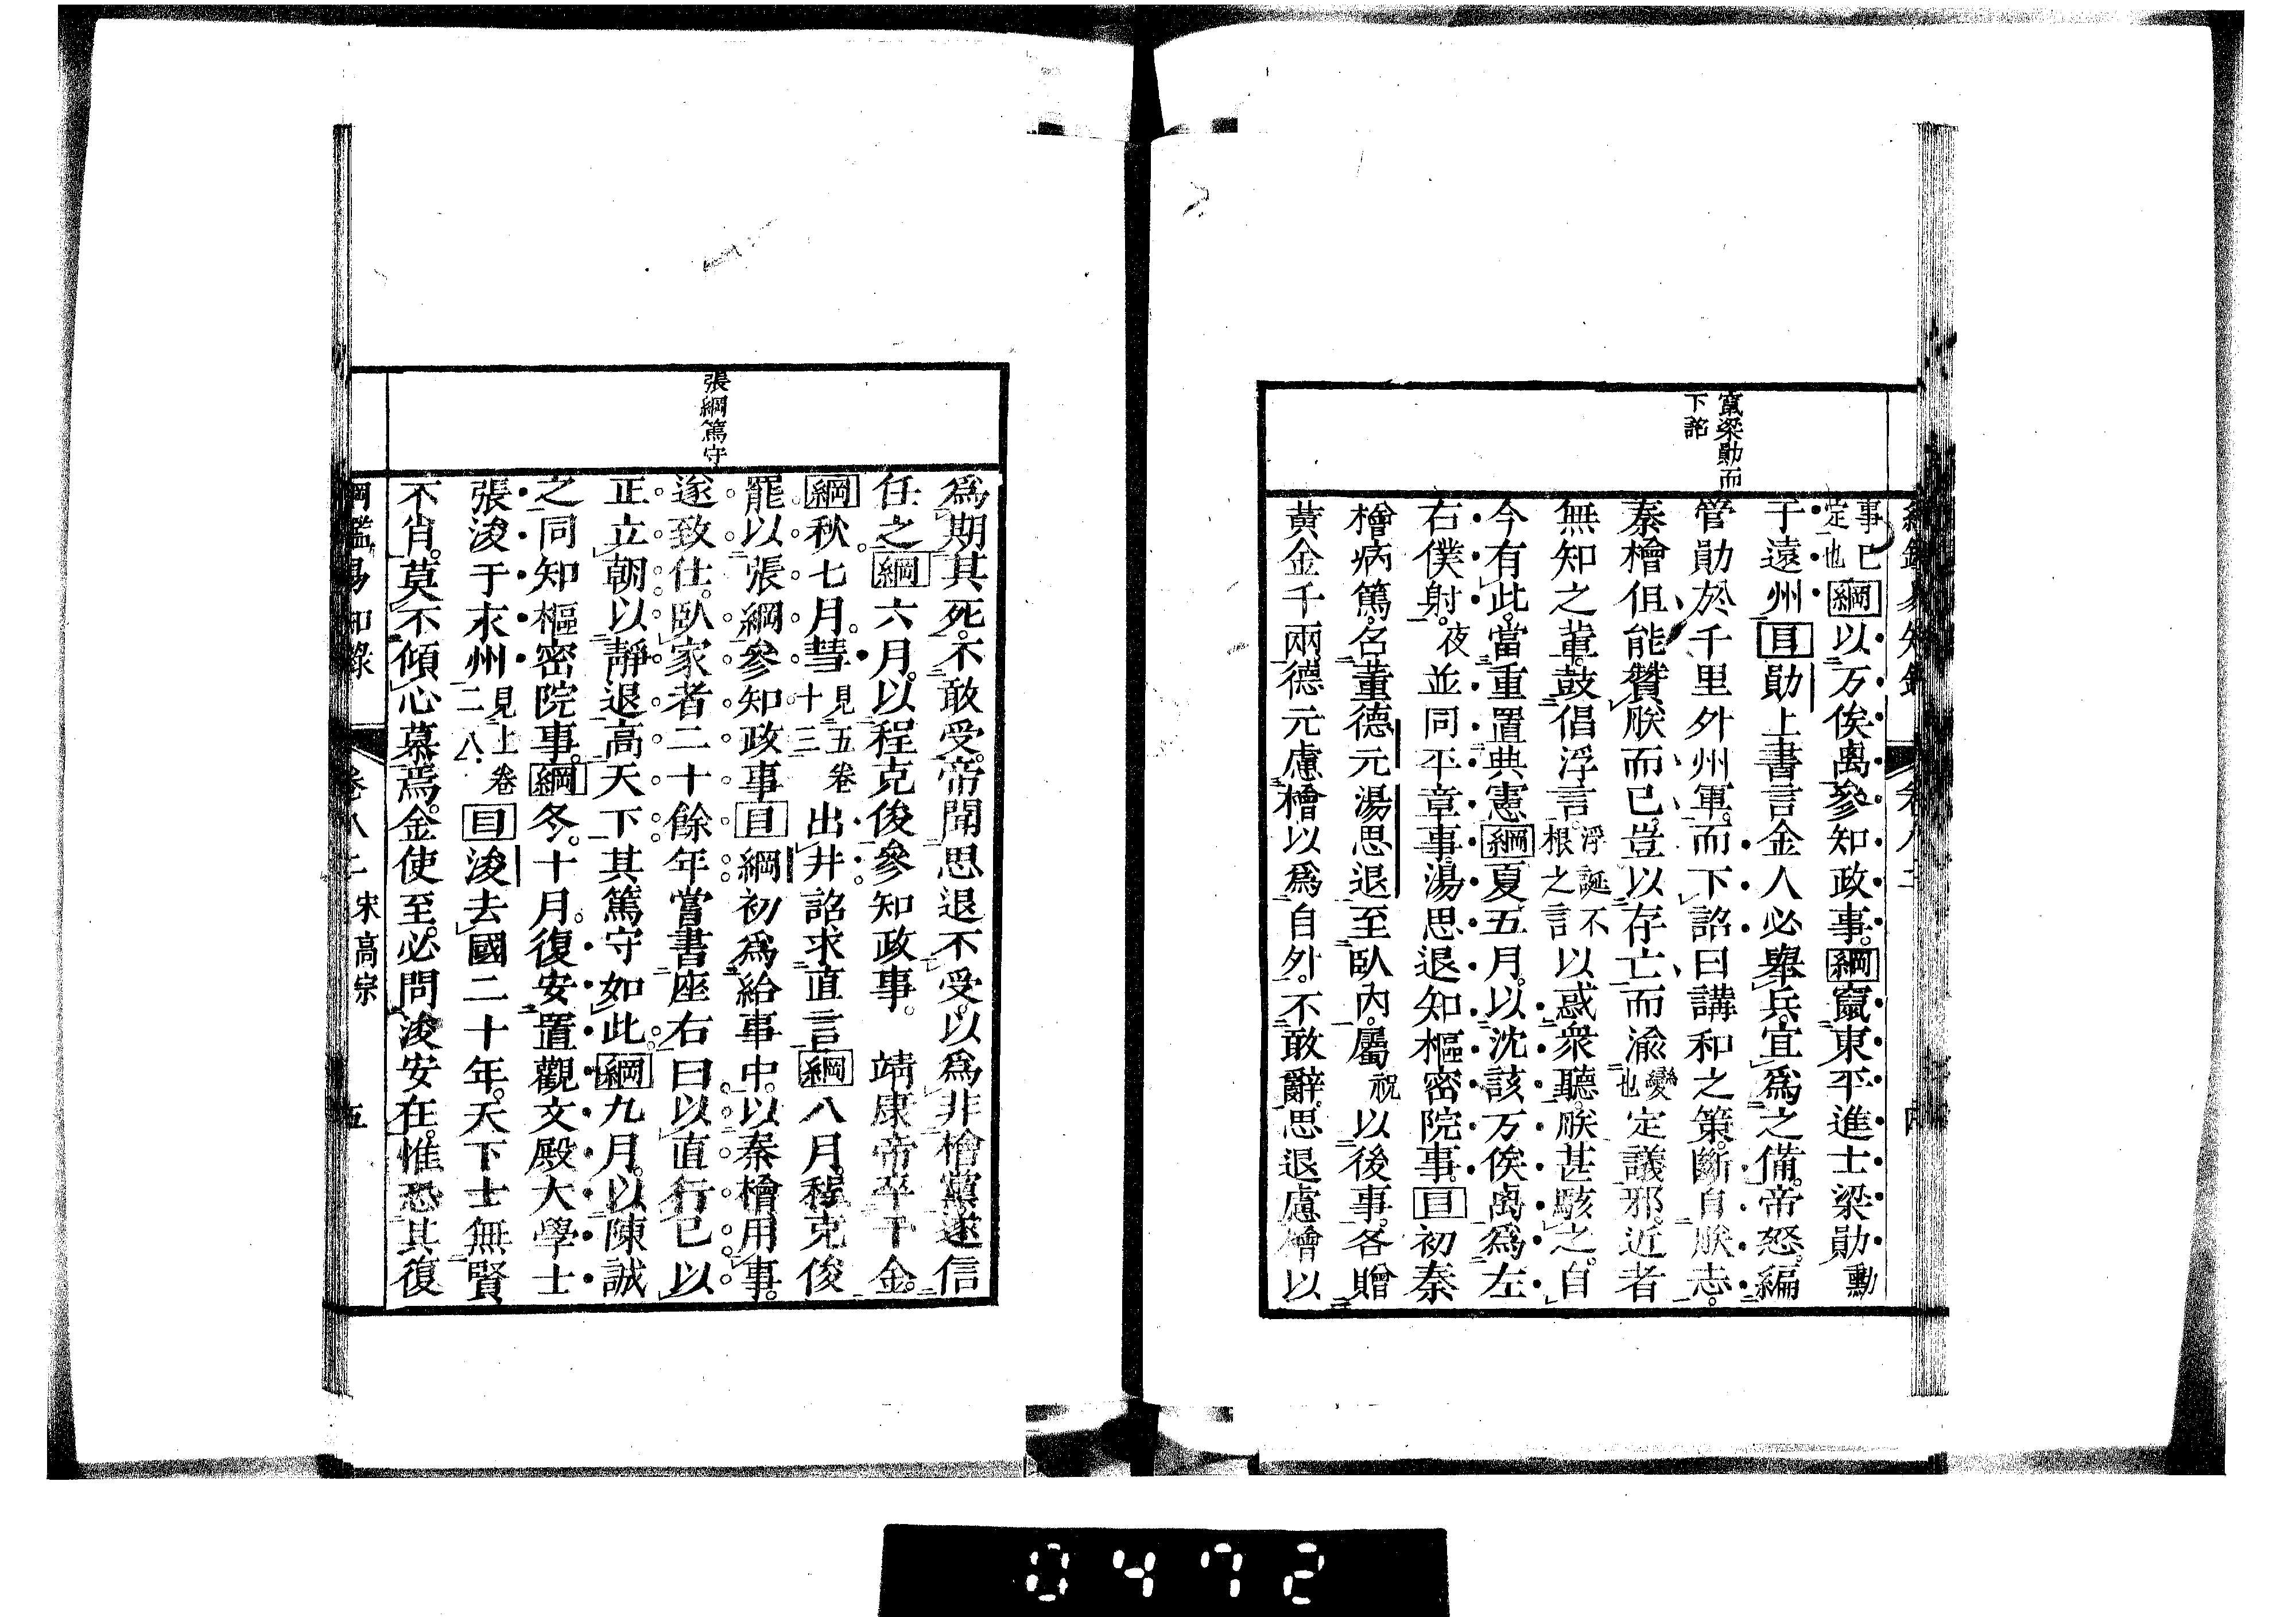 竄梁勛而
下詔
事已定也綱以万俟卨參知政事。綱竄東平進士梁勛勳
于遠州目勛上書言金人必舉兵。宜爲之備。帝怒。編
管勛於千里外州軍。而下詔曰講和之策。斷自朕志。
秦檜但能贊朕而已。豈以存亡而渝變也定議邪。近者
無知之輩。鼓倡浮言。浮誕不根之言以惑衆聽。朕甚駭之。自
今有此。當重置典憲綱夏五月。以沈該万俟卨爲左
右僕射。夜並同平章事。湯思退知樞密院事。目初秦
檜病篤。名董德元湯思退至臥內。屬祝以後事。各贈
黃金千兩德元慮檜以爲自外。不敢辭。思退慮檜以
張綱篤守
爲期其死。不敢受。帝聞思退不受。以爲非檜黨。遂信
任之。綱六月。以程克俊參知政事。 靖康帝卒于金。
綱秋七月。彗見五卷十三出井詔求直言綱八月。程克俊
罷以張綱參知政事目綱初爲給事中。以秦檜用事。
遂致仕。臥家者二十餘年嘗書座右曰以直行己以
正立朝以靜退高天下其篤守如此。綱九月。以陳誠
之同知樞密院事。綱冬。十月。復安置觀文殿大學士
張浚于永州見上卷二八目浚去國二十年。天下士無賢
不肖。莫不傾心慕焉。金使至。必問浚安在。惟恐其復
綱鑑易知錄 卷八二 宋高宗 五